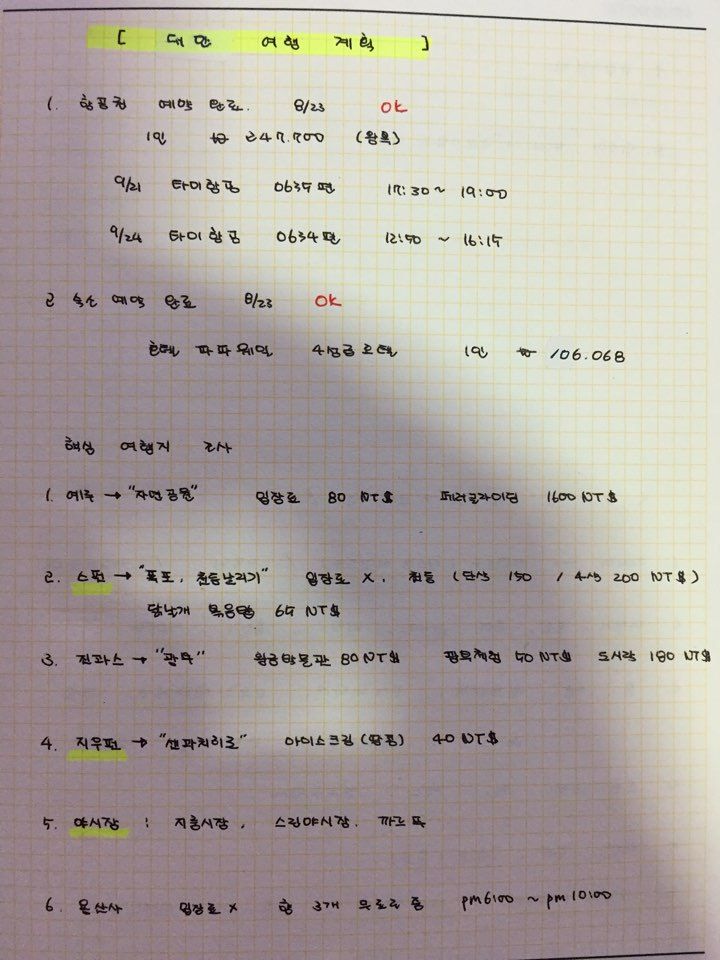 [ 대만 여행 계획 ]
1. 항공권 예약 완료. 8/23 OK
1인 ₩ 247.700 (왕복)
9/21 타이항공 0635편 17:30 ~ 19:00
9/24 타이항공 0634편 12:50 ~ 16:15
2 숙소 예약 완료 8/23 OK
호텔 파파웨일 4성급호텔 1인 ₩ 106.068
핵심 여행지 조사
1. 예류 → "자연공원" 입장료 80 NT$ 패러글라이딩 1600 NT$
2. 스펀 → "폭포, 천등날리기" 입장료 X, 천등 (단색 150 / 4색 200 NT$)
닭날개 볶음밥 65 NT$
3. 진과스 → "광부" 황금박물관 80 NT$ 광부체험 50 NT$ 도시락 180 NT$
4. 지우펀 → "센과치히로" 아이스크림 (땅콩) 40 NT$
5. 야시장 : 지룽시장, 스린야시장. 까르푸
6. 용산사 입장료 X 향 3개 무료로 줌 pm6:00 ~ pm10:00